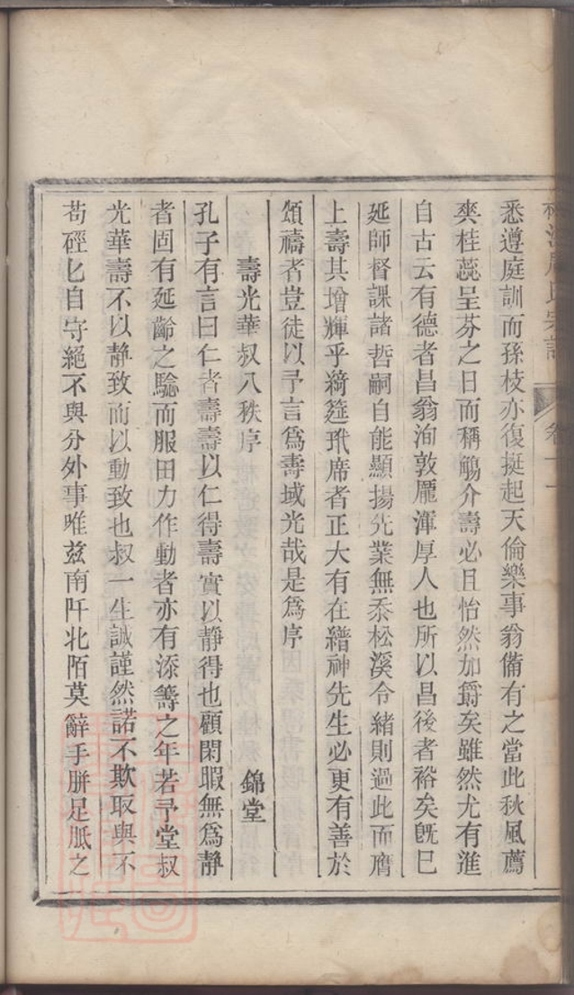 悉遵庭訓而孫枝亦復挺起天倫樂事翁備有之當此秋風薦
爽桂蕊呈芬之日而稱觴介壽必且怡然加爵矣雖然尤有進
自古云有德者昌翁洵敦龐渾厚人也所以昌後者裕矣旣已
延師督課諸哲嗣自能顯揚先業無忝松溪令緒則過此而膺
上壽其增輝乎綺筵玳席者正大有在縉紳先生必更有善於
頌禱者豈徒以予言爲壽域光哉是爲序
壽光華叔八秩序
錦堂
孔子有言曰仁者壽壽以仁得壽實以静得也顧閑暇無爲靜
者固有延齡之驗而服田力作動者亦有添籌之年若予堂叔
光華壽不以静致而以動致也叔一生誠謹然諾不欺取與不
苟硜匕自守絕不與分外事唯兹南阡北陌莫辭手胼足胝之